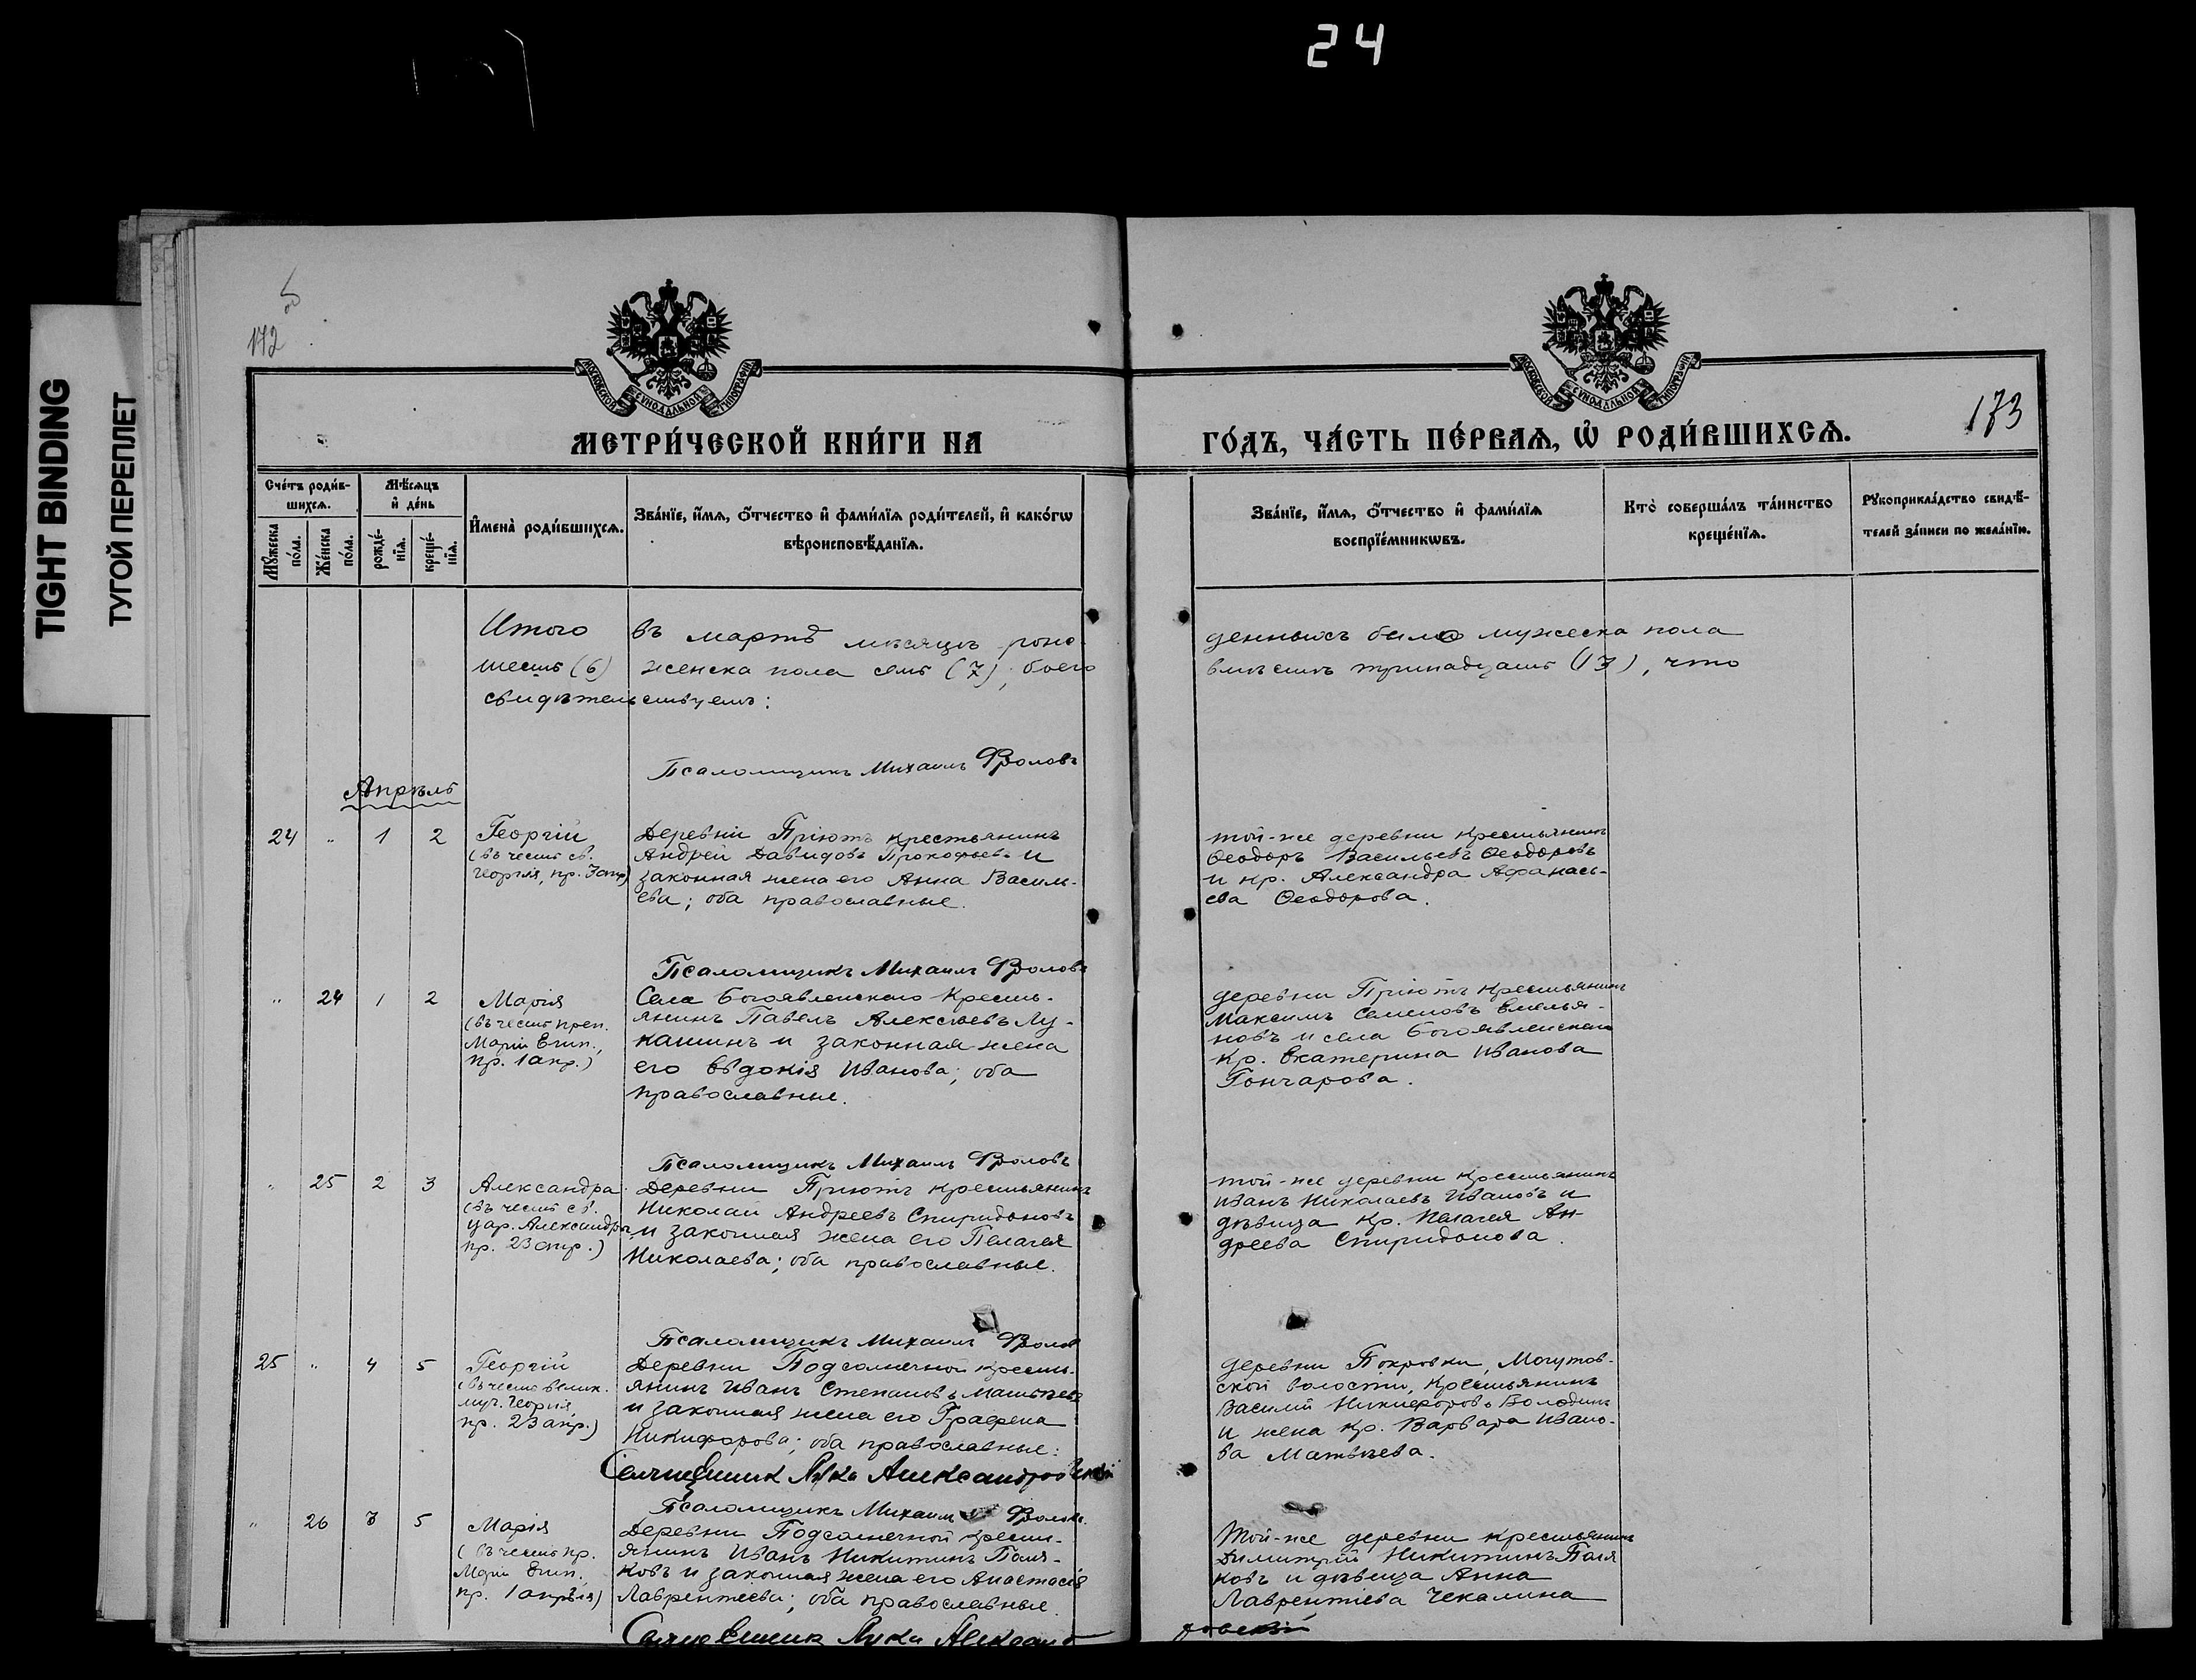 24
TIGHT BINDING
ТУГОЙ ПЕРЕПЛЕТ
172
МОСКОВСКОЙ СУНОДАЛЬНОЙ ТИПОГРАФІИ
МОСКОВСКОЙ СУНОДАЛЬНОЙ ТИПОГРАФІИ
173
МЕТРИ́ЧЕСКОЙ КНИ́ГИ НА
ГО́ДЪ, ЧА́СТЬ ПЕ́РВАѦ, Ѡ҆ РОДИ́ВШИХСѦ.
Сче́тъ роди́в-
шихсѧ.
Мꙋ́жеска по́ла.
Же́нска по́ла.
Мѣ́сѧцъ
и҆ де́нь
рожде́-
нїѧ.
креще́-
нїѧ.
И҆мена̀ роди́вшихсѧ.
Зва́нїе, и҆́мѧ, ѻ҆́тчество и҆ фами́лїѧ роди́телей, и҆ како́гѡ
вѣроисповѣ́данїѧ.
Зва́нїе, и҆́мѧ, ѻ҆́тчество и҆ фами́лїѧ
воспрїе́мникѡвъ.
Кто̀ соверша́лъ та́инство
креще́нїѧ.
Рꙋкоприкла́дство свидѣ́-
телей за́писи по жела́нїю.
Итого въ мартѣ мѣсяцѣ рож-
денныхъ было мужеска пола
шесть (6) женска пола семь (7), боего
вмѣстѣ тринадцать (13), что
свидѣтельствуемъ:
Псаломщикъ Михаилъ Фроловъ
Апрѣль
24 " 1 2
Георгій
(въ честь св.
Георгія, пр. 7 апр)
Деревни Пріютъ крестьянинъ
Андрей Давидовъ Прокофьевъ и
законная жена его Анна Василь-
ева; оба православные.
той-же деревни крестьянинъ
Ѳеодоръ Васильевъ Ѳеодоровъ
и кр. Александра Афанась-
ева Ѳеодорова.
Псаломщикъ Михаилъ Фроловъ
" 24 1 2
Марія
(въ честь преп.
Маріи Егип.,
пр. 1 апр.)
Села Богоявленскаго кресть-
янинъ Павелъ Алексѣевъ Лу-
кашинъ и законная жена
его Евдокія Иванова; оба
православные.
деревни Пріютъ крестьянинъ
Максимъ Семеновъ Емелья-
новъ и села Богоявленскаго
кр. Екатерина Иванова
Гончарова.
Псаломщикъ Михаилъ Фроловъ
" 25 2 3
Александра
(въ честь св.
цар. Александры
пр. 23 апр.)
Деревни Пріютъ крестьянинъ
Николай Андреевъ Спиридоновъ
и законная жена его Пелагея
Николаева; оба православные.
той-же деревни крестьянинъ
Иванъ Николаевъ Ивановъ и
дѣвица кр. Пелагея Ан-
дреева Спиридонова.
Псаломщикъ Михаилъ Фролов
25 " 4 5
Георгій
(въ честь велик.
муч. Георгія,
пр. 23 апр.)
Деревни Подсолнечной кресть-
янинъ Иванъ Степановъ Матвѣевъ
и законная жена его Графена
Никифорова; оба православные:
деревни Покровки, Могутов-
ской волости, крестьянинъ
Василій Никифоровъ Володинъ
и жена кр. Варвара Ивано-
ва Матвѣева.
Священник Лука Александровский
Псаломщикъ Михаилъ Фролов.
" 26 3 5
Марія
(въ честь пр.
Маріи Егип.
пр. 1 апрѣля)
Деревни Подсолнечной кресть-
янинъ Иванъ Никитинъ Поля-
ковъ и законная жена его Анастасія
Лаврентіева; оба православные.
Той-же деревни крестьянинъ
Димитрій Никитинъ Поля
ковъ и дѣвица Анна
Лаврентіева Чекалина
Священник Лука Александ
ровский